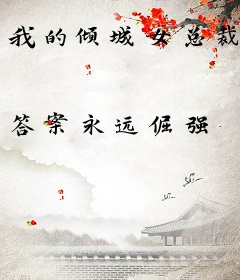 我的倾城女总裁
答案永远倔强